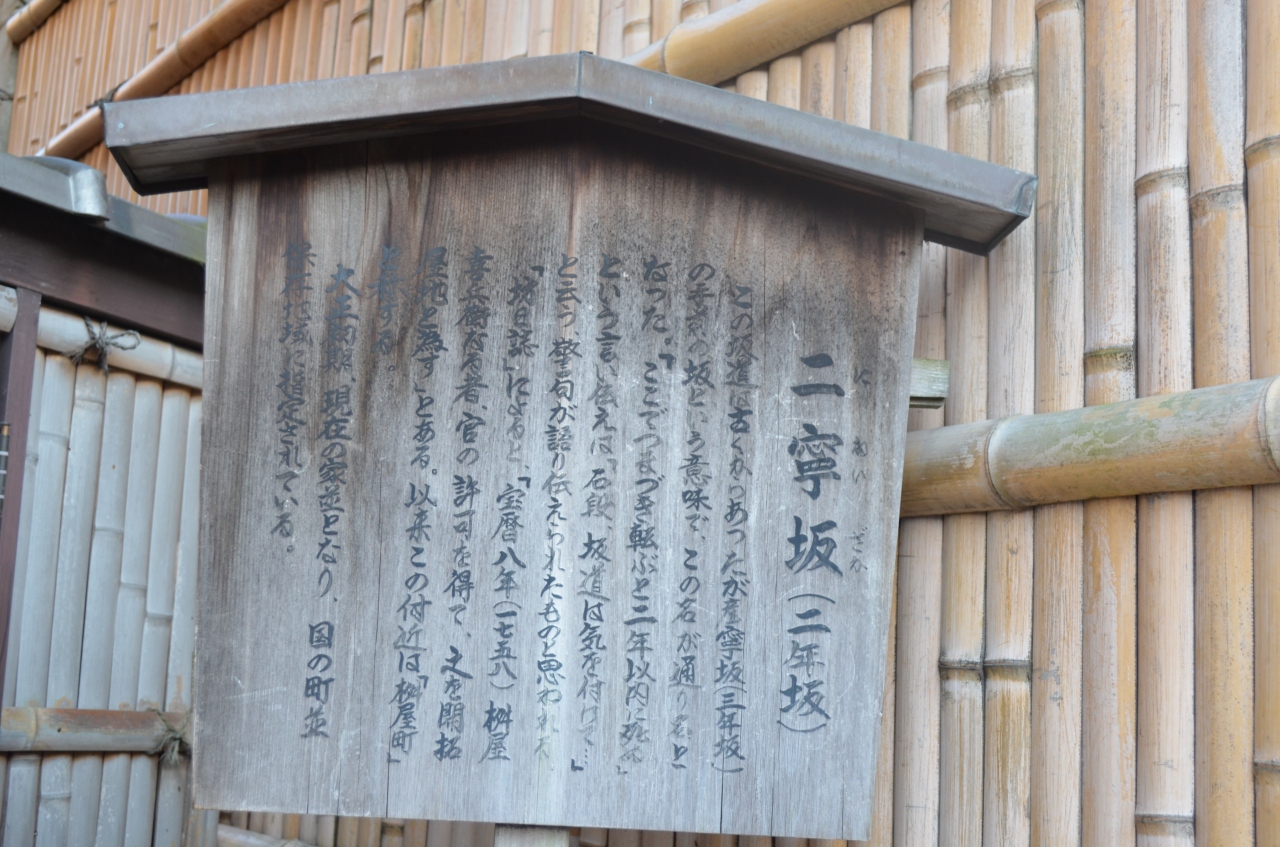 二寧坂(二年坂)
にねいざか
この坂道は古くからあったが産寧坂(三年坂)
の手前の坂という意味で、この名が通り名と
なった。「ここでつまづき転ぶと二年以内に死ぬ」
という言い伝えは「石段、坂道は気を付けて…」
と云う、警句が語り伝えられたものと思われる。
「坊目誌」によると、「宝暦八年(一七五八)桝屋
喜兵衛なる者、官の許可を得て、之を開拓
屋地と為す」とある。以来この付近は「桝屋町」
と称する。
大正初期、現在の家並となり、国の町並
保存地域に指定されている。